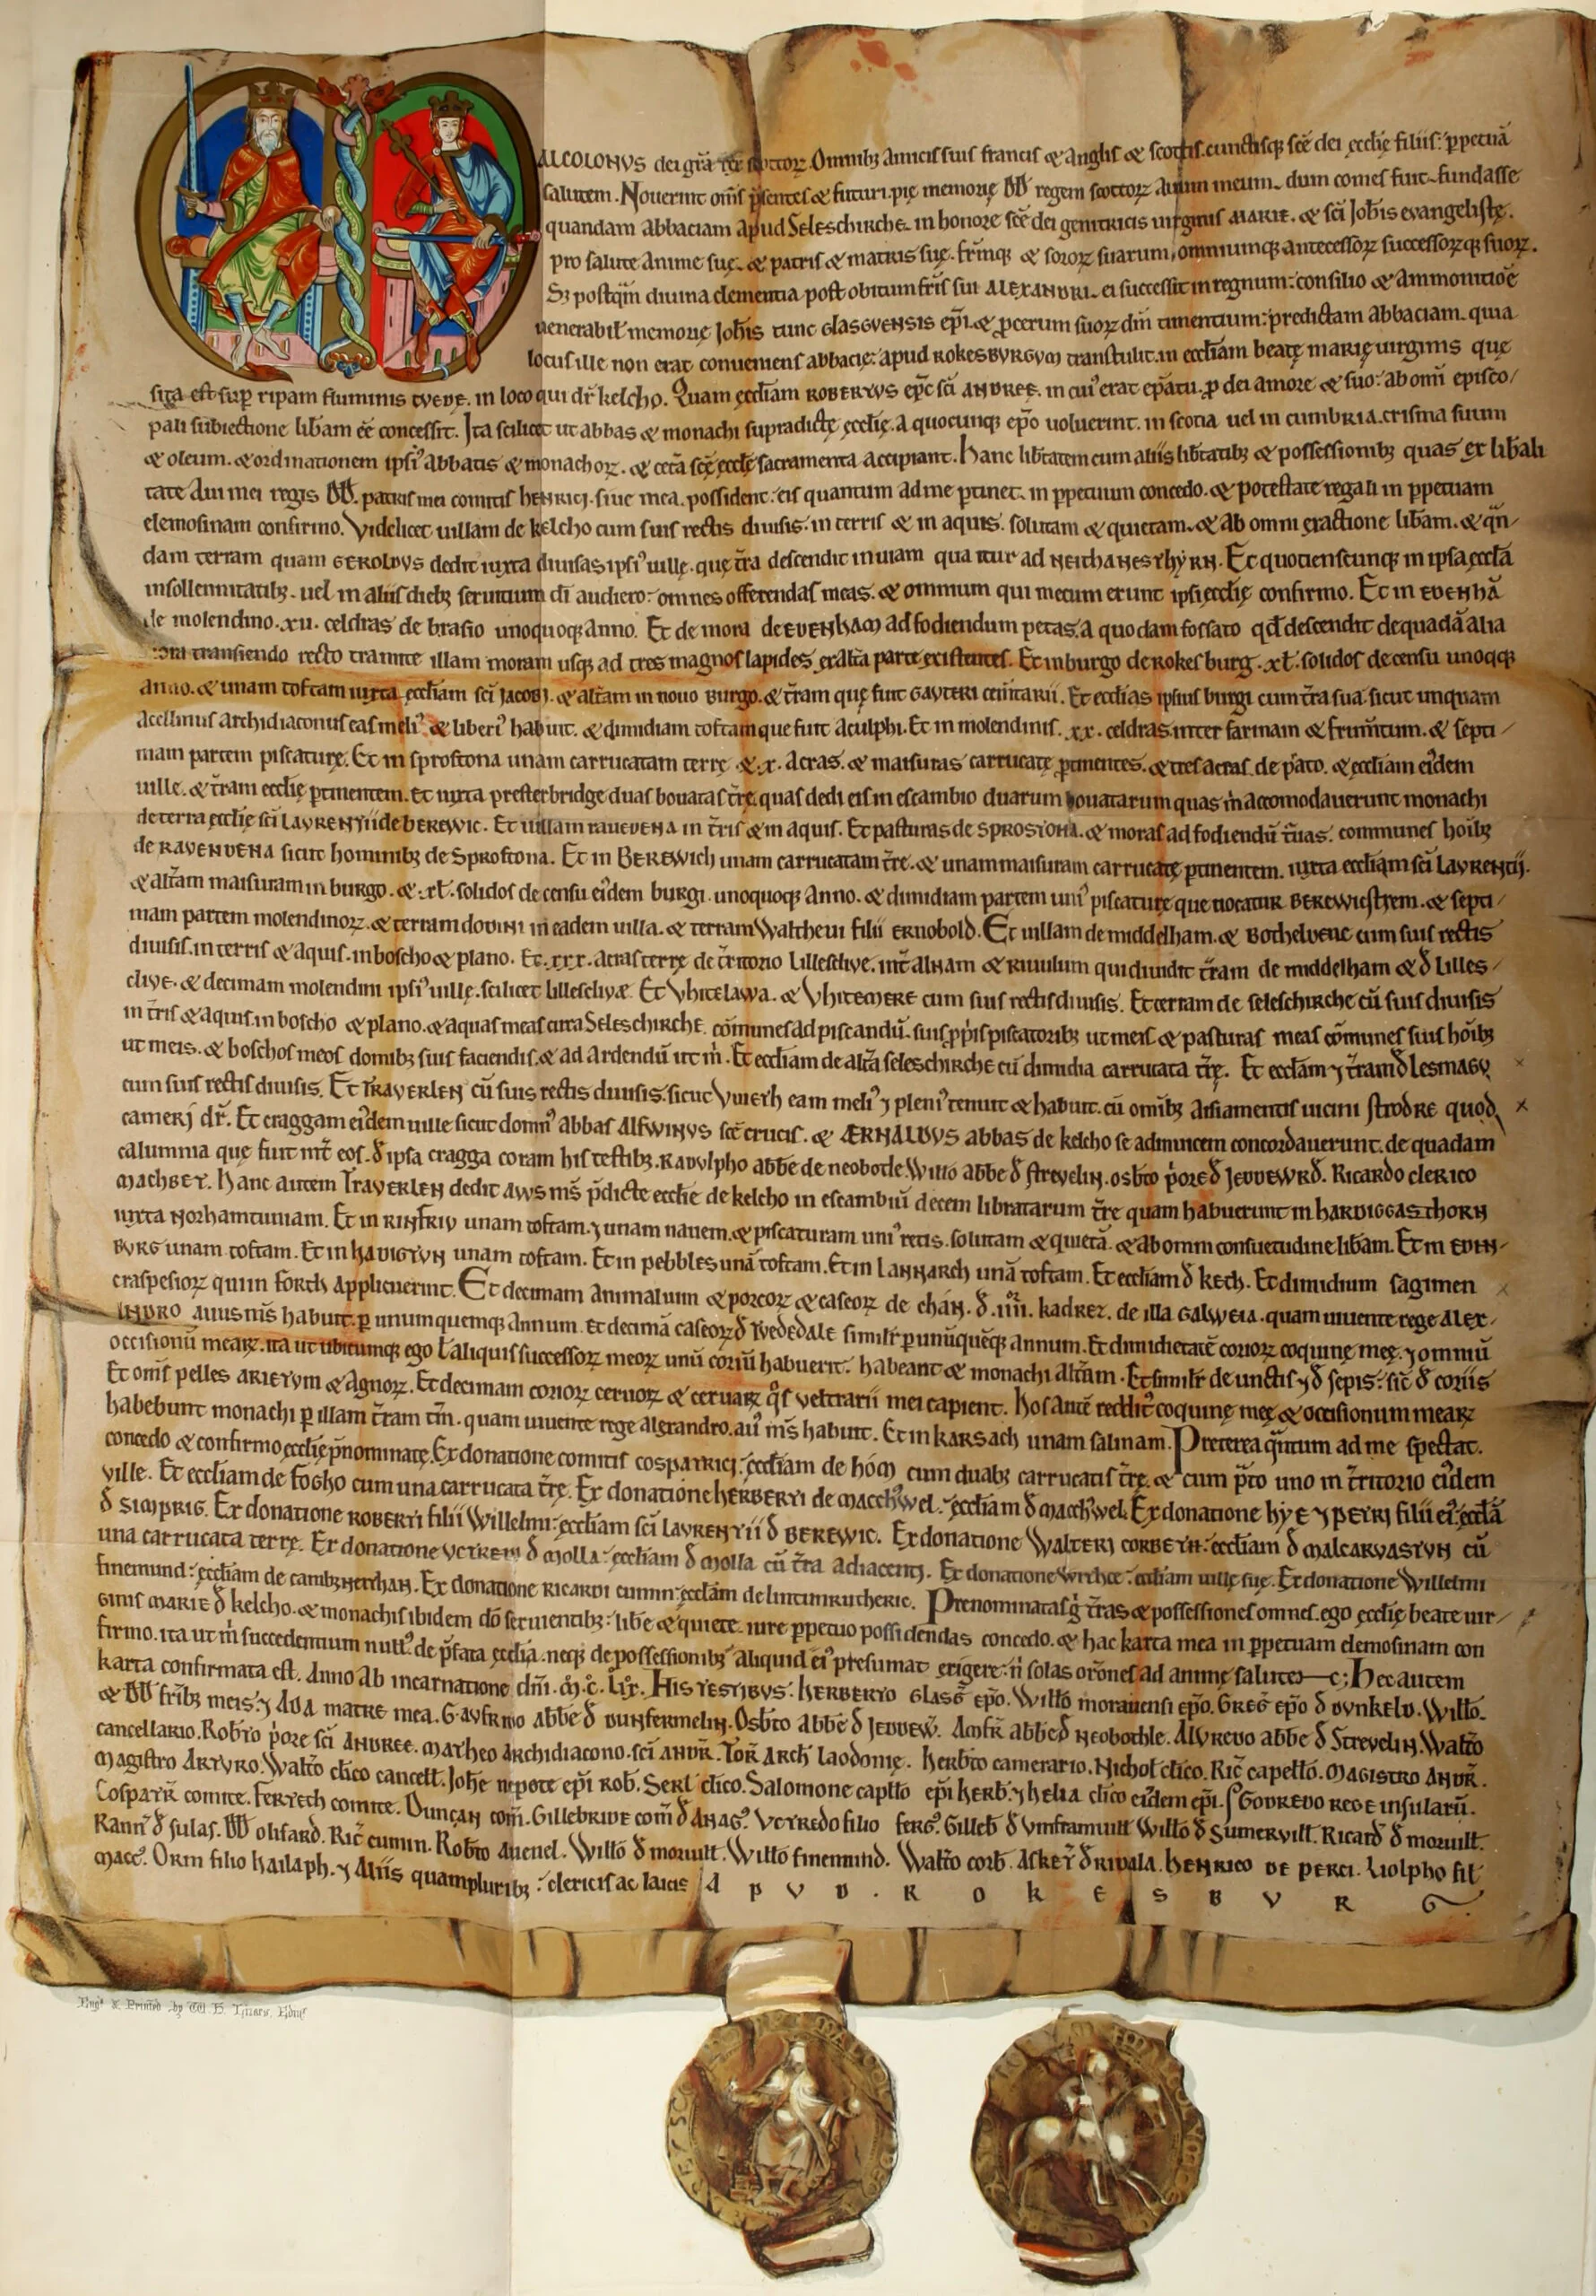 ALCOLONVS dei gr̄a rex scottoꝝ. Omnibꝫ amicis suis francis & anglis & scottis. cunctisqꝫ scē dei ęcclię filiis: ꝑpetuā
salutem. Nouerint om̄s p̄sentes & futuri. pię memorię DD regem scottoꝝ auum meum. dum comes fuit. fundasse
quandam abbaciam apud Seleschirche. in honore scē dei genitricis uirginis MARIE. & sc̄i Joh̄is evangelistę.
pro salute anime suę. & patris & matris suę. fr̄mqꝫ & soroꝝ suarum, omniumqꝫ antecessoꝝ successoꝝqꝫ suoꝝ.
Sꝫ postq̄m diuina clementia post obitum fr̄is sui ALEXANDRI. ei successit in regnum: consilio & ammonitiōe
uenerabil̄ memorię Joh̄is tunc GLASGVENSIS ep̄i. & ꝓcerum suoꝝ dm̄ timentium: predictam abbaciam. quia
locus ille non erat conueniens abbacię: apud ROKESBVRGVM transtulit. in eccl̄iam beatę marię uirginis que
sita est suꝑ ripam fluminis TVEDE. in loco qui dr̄ kelcho. Quam ęccl̄iam ROBERTVS epc̄ sc̄i ANDREE. in cuiꝰ erat ep̄atu. ꝓ dei amore & suo: ab omī episco/
pali subiectione lib̄am ēē concessit. Ita scilicet ut abbas & monachi supradictę ęcclię. a quocunqꝫ ep̄o uoluerint. in scotia uel in cumbria. crisma suum
& oleum. & ordinationem ipsiꝰ abbatis & monachoꝝ. & cet̄a scē ęccl̄ę sacramenta accipiant. Hanc lib̄tatem cum aliis lib̄tatibꝫ & possessionibꝫ quas ex lib̄ali
tate aui mei regis DD. patris mei comitis HENRICI. siue mea. possident: eis quantum ad me ꝑtinet. in ꝑpetuum concedo. & potestate regali in ꝑpetuam
elemosinam confirmo. Videlicet uillam de kelcho cum suis rectis diuisis. in terris & in aquis. solutam & quietam. & ab omni exactione lib̄am. & qn̄/
dam terram quam GEROLDVS dedit iuxta diuisas ipsiꝰ uillę. que t̄ra descendit in uiam qua itur ad NEITHANESTHYRN. Et quotienscunqꝫ in ipsa ęccl̄ā
in sollennitatibꝫ. uel in aliis diebꝫ seruitium dī audiero: omnes offerendas meas. & omnium qui mecum erunt ipsi ęcclię confirmo. Et in EDENHĀ
de molendino. xii. celdras de brasio unoquoqꝫ anno. Et de mora de EDENHAM ad fodiendum petas. a quodam fossato qd̄ descendit de quadā alia
mora transiendo recto tramite illam moram usqꝫ ad tres magnos lapides ex alt̄a parte existentes. Et in burgo de rokesburg. xl̄. solidos de censu unoqꝫ
anno. & unam toftam iuxta ęccl̄iam sc̄i JACOBI. & alt̄am in nouo burgo. & t̄ram que fuit GAVTERI cem̄tarii. Et eccl̄ias ipsius burgi cum t̄ra sua. sicut unquam
Acellinus Archidiaconus eas meliꝰ & liberiꝰ habuit. & dimidiam toftam que fuit aculphi. Et in molendinis. xx. celdras. inter farinam & frum̄tum. & septi/
mam partem piscaturę. Et in sprostona unam carrucatam terrę. & x. acras. & maisuras carrucatę ꝑtinentes. & tres acras de p̄ato. & ęccl̄iam eiꝰdem
uille. & t̄ram ecclię ꝑtinentem. Et iuxta presterbridge duas bouatas t̄rę quas dedi eis in escambio duarum bouatarum quas m̄ accomodauerunt monachi
de terra ęcclię sc̄i LAVRENTII de BEREWIC. Et uillam RAVEDENA in t̄ris & in aquis. Et pasturas de SPROSTONA. & moras ad fodiendū t̄uas. communes hoībꝫ
de RAVENDENA sicut hominibꝫ de Sprostona. Et in BEREWICH unam carrucatam t̄re. & unam maisuram carrucatę ꝑtinentem. iuxta eccl̄iam sc̄i LAVRENTII.
& alt̄am maisuram in burgo. & xl̄. solidos de censu eiꝰdem burgi. unoquoqꝫ anno. & dimidiam partem uniꝰ piscature que uocatur BEREWICSTREM. & septi/
mam partem molendinoꝝ. & terram DODINI in eadem uilla. & terram Waltheui filii ERNOBOLD. Et uillam de middelham. & BOTHELDENE cum suis rectis
diuisis. in terris & aquis. in boscho & plano. Et. xxx. acras terrę de t̄ritorio Lillesclive. int̄ ALNAM & riuulum qui diuidit t̄ram de middelham & đ lilles/
clive. & decimam molendini ipsiꝰ uillę. scilicet lillesclivæ. Et VHITELAWA. & VHITEMERE cum suis rectis diuisis. Et terram de seleschirche cū suis diuisis
in t̄ris & aquis. in boscho & plano. & aquas meas circa Seleschirche. cōmunes ad piscandū. suis ꝓpis piscatoribꝫ ut meis. & pasturas meas cōmunes suis hoībꝫ
ut meis. & boschos meos domibꝫ suis faciendis. & ad ardendū ut m̄. Et eccl̄iam de alt̄a seleschirche cū dimidia carrucata t̄rę. Et eccl̄am ⁊ t̄ram đ LESMAGV
cum suis rectis diuisis. Et TRAVERLEN cū suis rectis diuisis. sicut Vuieth eam meliꝰ ⁊ pleniꝰ tenuit & habuit. cū omībꝫ aisiamentis uicini STRODRE quod
cameri dr̄. Et craggam eiꝰdem uille sicut domnꝰ abbas ALFWINVS scē crucis. & ÆRNALDVS abbas de kelcho se adinuicem concordauerunt. de quadam
calumnia que fuit int̄ eos. đ ipsa cragga coram his testibꝫ. RADVLPHO abb̄e de neobotle. Willo abb̄e đ strevelin. osb̄to p̄ore đ JEDDEWRĐ. Ricardo clerico
MACHBET. Hanc autem TRAVERLEN dedit AVVS mS̄ p̄dicte ecclie de kelcho in escambiū decem libratarum t̄re quam habuerunt in HARDIGGASTHORN
iuxta NORHAMTUNAM. Et in RINFRIV unam toftam. ⁊ unam nauem. & piscaturam uniꝰ retis. solutam & quietā. & ab omni consuetudine lib̄am. Et in EDIN/
BVRG unam toftam. Et in HADIGTVN unam toftam. Et in pebbles unā toftam. Et in LANNARCH unā toftam. Et eccl̄iam đ kech. Et dimidium sagimen
craspesioꝝ qui in forth applicuerint. Et decimam animalium & porcoꝝ & caseoꝝ de chan. đ .iiii. kadrez. de illa GALWEIA. quam uiuente rege ALEX/
ANDRO auus mS̄ habuit. ꝑ unumquemqꝫ annum. Et decimā caseoꝝ đ TVEDEDALE similit̄ ꝑ unūqueqꝫ annum. Et dimidietatē corioꝝ coquinę meę. ⁊ omniū
occisionū meaꝝ. ita ut ubicumqꝫ ego l̄ aliquis successoꝝ meoꝝ unū coriū habuerit: habeant & monachi alt̄am. Et similit̄ de unctis ⁊ đ sepis: sic̄ đ coriis
Et om̄s pelles ARIETVM & agnoꝝ. Et decimam corioꝝ ceruoꝝ & ceruaꝝ qͦs veltrarii mei capient. Hos autē reddit̄ꝰ coquinę meę & occisionum meaꝝ
habebunt monachi ꝑ illam t̄ram tm̄. quam uiuente rege alexandro. auꝰ mS̄ habuit. Et in KARSACH unam salinam. Preterea q̄ntum ad me spectat.
concedo & confirmo ęcclię p̄nominatę. Ex donatione comitis COSPATRICI: ęccl̄iam de hōm cum duabꝫ carrucatis t̄rę. & cum p̄to uno in t̄ritorio eiꝰdem
uille. Et eccl̄iam de fogho cum una carrucata t̄rę. Ex donatione HERBERTI de macchꝰwel: ęccl̄iam đ macchꝰwel. Ex donatione HYE ⁊ PETRI filii eiꝰ: ęccl̄ā
đ SIMPRIG. Ex donatione ROBERTI filii Willelmi: ęccl̄iam sc̄i LAVRENTII đ BEREWIC. Ex donatione WALTERI CORBETH: ęccl̄iam đ MALCARVASTVN cū
una carrucata terrę. Ex donatione VCTREDI đ MOLLA: ęccl̄iam đ MOLLA cū t̄ra adiacenti. Ex donatione Withce: eccl̄iam uillę suę. Ex donatione Willelmi
finemund: ęccl̄iam de cambꝫNETHAN. Ex donatione RICARDI cumin: ęccl̄am de lintunruderic. Prenominatas ḡ t̄ras & possessiones omnes. ego ęcclię beate uir/
ginis MARIE đ kelcho. & monachis ibidem dō seruientibꝫ: lib̄e & quiete. iure ꝑpetuo possidendas concedo. & hac karta mea in ꝑpetuam elemosinam con
firmo. ita ut m̄ succedentium nullꝰ de p̄fata ęccl̄ia. neqꝫ de possessionibꝫ aliquid eiꝰ presumat exigere: n̄ solas orōnes ad animę salutē. Hec autem
karta confirmata est. anno ab incarnatione dm̄i. m̊. c̊. l̊ix̊. His TESTIBVS. HERBERTO GLASḠ ep̄o. Willo moraviensi ep̄o. GREḠ ep̄o đ DVNKELD. Willo.
& DD fr̄ibꝫ meis. ⁊ ADA MATRE mea. GAVFRIDO abb̄e đ DUNFERMELIN. Osb̄to abb̄e đ JEDDEW̄. Amfr̄ abb̄e đ NEOBOTHLE. ALVREDO abb̄e đ STREVELIN. Walt̄o
cancellario. Rob̄to p̄ore sc̄i ANDREE. MATHEO archidiacono. sc̄i ANDR̄. TOR̄ ARCH̄ laodonie. Herb̄to camerario. Nichol̄ cl̄ico. Ric̄ capell̄o. MAGISTRO ANDR̄.
magistro ARTVRO. Walt̄o cl̄ico cancell̄. Joh̄e nepote ep̄i ROB̄. SERL̄ cl̄ico. Salomone capll̄o ep̄i HERB̄. ⁊ HELIA cl̄ico eiꝰdem ep̄i. GODREDO REGE insularū.
COSPATR̄ comite. FERTECH comite. DUNCAN com̄. GILLEBRIDE com̄ đ ANAGꝰ. VCTREDO filio FERGꝰ. GILLEB̄ đ Vmframuill̄ Will̄o đ SUMERVILL̄. RICARĐ đ moruill̄.
Rann̄ đ sulas. DD olifard. Ric̄ cumin. Rob̄to Auenel. Will̄o đ moruill̄. Will̄o finemund. Walt̄o corb̄. ASKET̄ đ RIDALA. HENRICO DE PERCI. Liolpho fil̄
maccꝰ. Orm filio hailaph. ⁊ Aliis quampluribꝫ: clericis ac laicis. A P V D . R O K E S B V R G
Engd. & Printed by W. H. Lizars, Edinr.